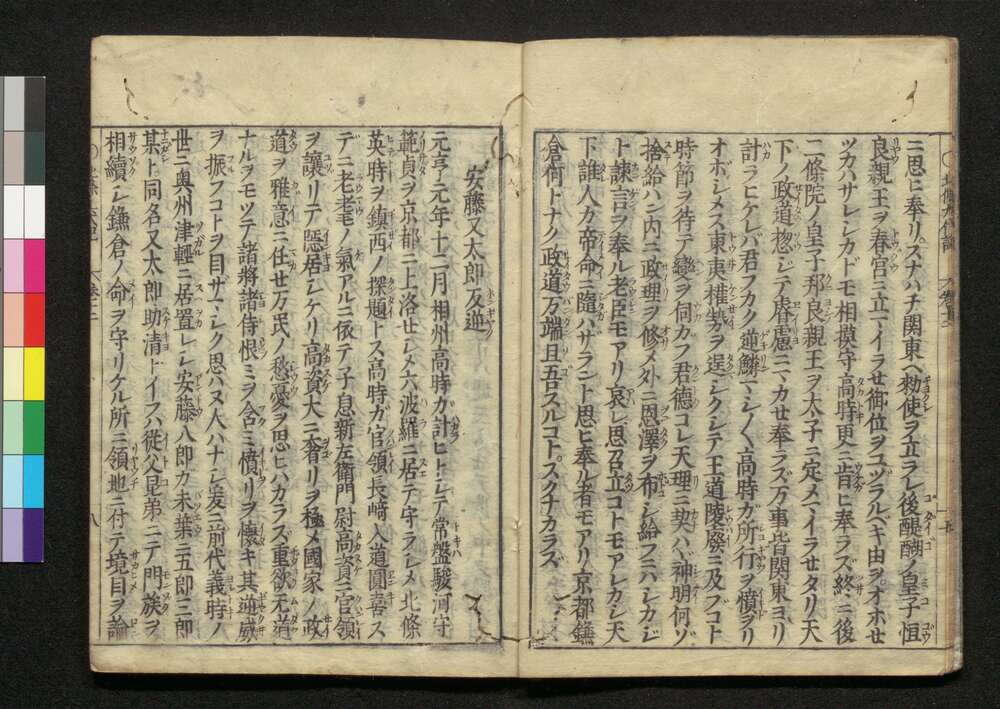 ニ思ヒ奉リスナハチ関東ヘ勅使ヲ立ラレ後醍醐ノ皇子恒
良親王ヲ春宮ニ立マイラせ御位ヲユヅラルベキ由ヲオホせ
ツカハサレシカドモ相模守高時更ニ肯ヒ奉ラズ終ニ後
二條院ノ皇子邦良親王ヲ太子ニ定メマイラせタリ天
下ノ政道惣ジテ睿慮ニマカせ奉ラズ万事皆関東ヨリ
計ラヒケレバ君フカク逆鱗マシ〱高時カ所行ヲ憤ヲリ
オボシメス東夷權勢ヲ逞マシクシテ王道陵廢ニ及ブコト
時節ヲ待テ變ヲ伺カフ君德コレ天理ニ契ハヾ神明何ゾ
捨給ハン内ニ政理ヲ修メ外ニ恩澤ヲ布シ給フニハシカジ
ト諫言ヲ奉ル老臣モアリ哀レ思召立コトモアレカシ天
下誰人カ帝命ニ隨ハサラント思ヒ奉ル者モアリ京都鎌
倉何トナク政道万端且吾スルコトスクナカラズ
安藤又太郎反逆
元亨元年十二月相州高時カ計ヒトシテ常盤駿河守
範貞ヲ京都ニ上洛せシメ六波羅ニ居テ守ラシメ北條
英時ヲ鎮西ノ探題トス高時ガ官領長﨑入道圓喜ス
デニ老耄ノ氣アルニ依テ子息新左衛門尉高資ニ官領
ヲ讓リテ隱居シケリ高資大ニ奢リヲ極メ國家ノ政
道ヲ雅意ニ任せ万民ノ愁憂ヲ思ヒハカラス重欲无道
ナルヲモツテ諸將諸侍恨ミヲ含ミ憤リヲ懐キ其逆威
ヲ振フコトヲ目ザマシク思ハヌ人ハナシ爰ニ前代義時ノ
世ニ奥州津輕ニ居置レシ安藤八郎カ末葉ニ五郎三郎
某ト同名又太郎助清トイフハ從父兄弟ニテ門族ヲ
相續シ鎌倉ノ命ヲ守リケル所ニ領地ニ付テ境目ヲ論